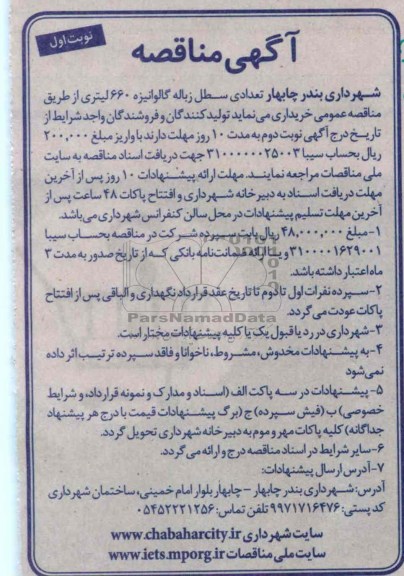 نوبت اول
آگهی مناقصه
شهرداری بندر چابهار تعدادی سطل زباله گالوانیزه ۶۶۰ لیتری از طریق
مناقصه عمومی خریداری می‌نماید تولیدکنندگان و فروشندگان واجد شرایط از
تاریخ درج آگهی نوبت دوم به مدت ۱۰ روز مهلت دارند با واریز مبلغ ۲۰۰,۰۰۰
ریال بحساب سیبا ۳۱۰۰۰۰۰۰۲۵۰۰۳ جهت دریافت اسناد مناقصه به سایت
ملی مناقصات مراجعه نمایند. مهلت ارائه پیشنهادات ۱۰ روز پس از آخرین
مهلت دریافت اسناد به دبیرخانه شهرداری و افتتاح پاکات ۴۸ ساعت پس از
آخرین مهلت تسلیم پیشنهادات در محل سالن کنفرانس شهرداری می‌باشد.
۱-مبلغ ۴۸,۰۰۰,۰۰۰ ریال بابت سپرده شرکت در مناقصه بحساب سیبا
۳۱۰۰۰۰۱۶۲۹۰۰۱ و یا ارائه ضمانت‌نامه بانکی که از تاریخ صدور به مدت ۳
ماه اعتبار داشته باشد.
۲-سپرده نفرات اول تا دوم تا تاریخ عقد قرارداد نگهداری و الباقی پس از افتتاح
پاکات عودت می‌گردد.
ParsNamadData
۳-شهرداری در رد یا قبول یک یا کلیه پیشنهادات مختار است.
۴-به پیشنهادات مخدوش، مشروط، ناخوانا و فاقد سپرده ترتیب اثر داده
نمی‌شود
۵- پیشنهادات در سه پاکت الف (اسناد و مدارک و نمونه قرارداد، و شرایط
خصوصی) ب (فیش سپرده) ج (برگ پیشنهادات قیمت با درج هر پیشنهاد
جداگانه) کلیه پاکات مهر و موم به دبیرخانه شهرداری تحویل گردد.
۶-سایر شرایط در اسناد مناقصه درج و ارائه می‌گردد.
۷-آدرس ارسال پیشنهادات:
آدرس: شهرداری بندر چابهار - چابهار بلوار امام خمینی، ساختمان شهرداری
کد پستی: ۹۹۷۱۷۱۶۴۷۶ تلفن تماس: ۰۵۴۵۲۲۲۱۲۵۶
سایت شهرداری www.chabaharcity.ir
سایت ملی مناقصات www.iets.mporg.ir